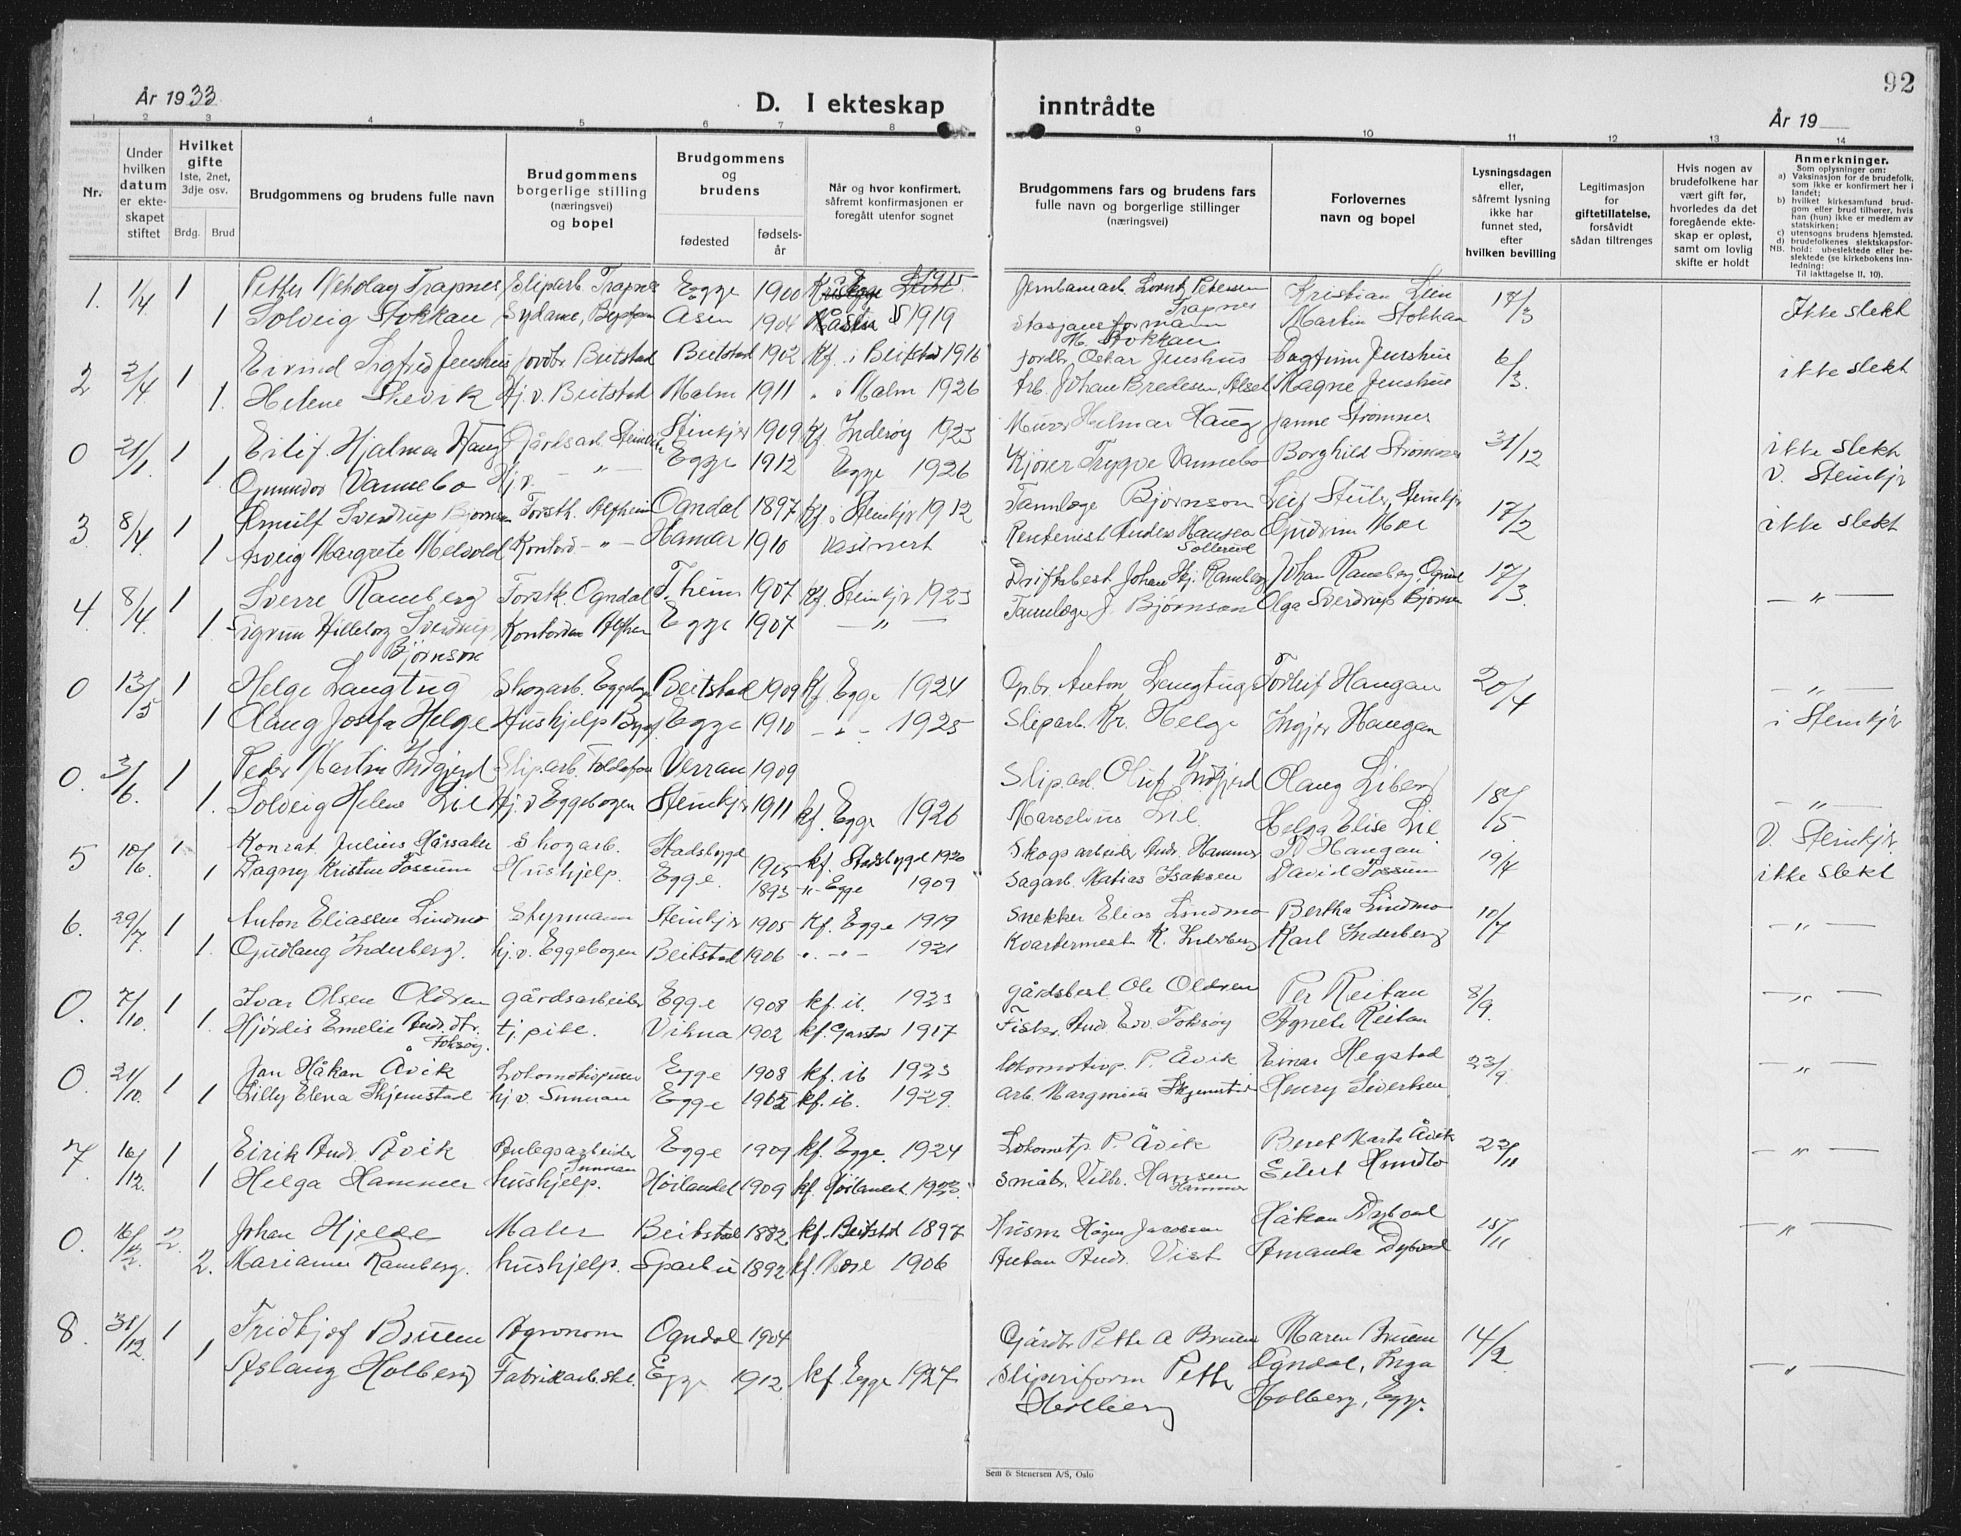 92
År 1933
D. I ekteskap inntrådte
År 19
1 2 3 4 5 6 7 8 9 10 11 12 13 14
Nr.
Under hvilken datum er ekteskapet stiftet
Hvilket gifte 1ste, 2net, 3dje osv.
Brdg. Brud
Brudgommens og brudens fulle navn
Brudgommens borgerlige stilling (næringsvei) og bopel
Brudgommens og brudens
fødested
fødselsår
Når og hvor konfirmert, såfremt konfirmasjonen er foregått utenfor sognet
Brudgommens fars og brudens fars fulle navn og borgerlige stillinger (næringsvei)
Forlovernes navn og bopel
Lysningsdagen eller, såfremt lysning ikke har funnet sted, efter hvilken bevilling
Legitimasjon for giftetillatelse, forsåvidt sådan tiltrenges
Hvis nogen av brudefolkene har vært gift før, hvorledes da det foregående ekteskap er opløst, samt om lovlig skifte er holdt
Anmerkninger.
Som oplysninger om:
a) Vaksinasjon for de brudefolk, som ikke er konfirmert her i landet;
b) hvilket kirkesamfund brudgom eller brud tilhører, hvis han (hun) ikke er medlem av statskirken;
c) utensogns brudens hjemsted.
d) brudefolkenes slektskapsforhold: ubeslektede eller beslektede (se kirkebokens innledning:
NB.
Til iakttagelse II, 10).
1. 1/4 1 Petter Nikolay Trapnes Sliparb. Trapnes Egge 1900 Jernbanearb. Lornts Petersen Trapnes Kristian Lein 17/3 Ikke slekt
1 Solveig Stokkan Sydame, Asen 1904 1919 Stasjonsformann H. Stokkan Martin Stokkan
2 2/4 1 Eivind Sigfred Jenshus jordbr. Beitstad Beitstad 1902 Kf. i Beitstad 1916 jordbr. Oskar Jenshus Dagfinn Jenshus 6/3 ikke slekt
1. Helene Skevik Hj. v. Beitstad Malm 1911 " i Malm 1926 Arb. Johan Bredesen, Magne Jenshus
0 21/1 1 Eilif Hjalmar Haug Gårdsarb. Steinkjer Steinkjer 1909 Kf. Inderøy 1923 Murer Helmar Haug Janne Strømnes 31/12 ikke slekt
1 Gunnvor Vannebo Hj. v. — " — Egge 1912 Egge 1926 Kjører Trygve Vannebo Borghild Strømnes V. Steinkjer
3 8/4 1 Sverdrup Bjørnson Forstk. Ogndal 1897 Kf. i Steinkjer 1912 Tannlæge Bjørnson Leif Steinkjer 17/2 ikke slekt
1 Asveig Margrete Melvold Kontord — " — Hamar 1910 Rentenist Anders Hansen Sollerud Gudrun Moe
4 8/4 1 Sverre Ramberg Forstk. Ogndal T.heim 1907 Kf. Steinkjer 1923 Driftsbest Johan Hj. Ramberg Johan Ramberg, 17/3. — " —
1. Sigrun Hilleborg Sverdrup Bjørnson Egge 1907 — " — Tannlæge J. Bjørnson Olga Sverdrup Bjørnson
0 13/5 1 Helge Langtug Skogarb. Beitstad 1909 Kf. Egge 1924 Gbr. Anton Langtug Torleif Haugan 20/4 — " —
1 Olaug Josefa Helge Hushjelp Egge 1910 — " — 1925 Sliparb. Kr. Helge Ingjer Haugan i Steinkjer
0. 3/6 1 Peder Martin Indgjerd Sliparb. Verran 1909 Sliparb. Oluf Indgjerd Olaug Liberg 18/5 — " —
1. Solveig Helene Lil Hj. v. Eggebogen Steinkjer 1911 kf. Egge 1926 Marselius Lil. Helga Elise Lil V. Steinkjer
5 10/6 1 Konrat Julius Hårsaker Skogarb. Stadsbygd 1905 kf. Stadsbygd 1920 Skogsarbeider Andr. Hammer Haugan 19/4 ikke slekt
1 Dagny Kristine Fossum Hushjelp. Egge. 1893 " Egge 1909 Sagarb. Matias Isaksen David Fossum
6. 29/7 1 Anton Eliassen Lindmo Styrmann Steinkjer 1905 Kf. Egge 1919 Snekker Elias Lindmo Bertha Lindmo 10/7 — " —
1. Gudlaug Inderberg. hj. v. Eggebogen Beitstad 1906 " — " — 1921 Kvartermest. K. Inderberg Karl Inderberg
0. 7/10 1 Ivar Olsen Oldren gårdsarbeider Egge 1908 kf. ib. 1923 gårdsbest. Ole Oldren Per Reitan 8/9. — " —
1. Hjørdis Emelie Andr. dtr. Foksøy. tj. pike. Vikna 1902 kf. Garstad 1917 Fisker, Andr. Edv. Foksøy Agnete Reitan
0. 21/10. 1 Jan Håkan Åvik Lokomotivpusser Egge 1908 kf. ib 1923 lokomotivp. P. Åvik Einar Hegstad 23/9. — " —
1 Lilly Elena Skjemstad hj. v. Sunnan Egge kf. ib. 1929. arb. Skjemstad Henry Sivertsen
7. 16/12. 1 Eirik Andr. Åvik Anlegsarbeider Sunnan Egge 1909 kf. Egge. 1924 Lokomotp. P. Åvik Beret Marta Åvik 22/11 — " —
1 Helga Hammer hushjelp. Høilandet 1909 kf. Høilandet. 1923. småbr. Vilh. Hansen Hammer Eilert
0. 16/12. 2 Johan Hjelde Maler Beitstad 1882 kf. Beitstad 1897 Jacobsen Håkan Dybvad 15/11 "
2. Marianne Ramberg. hushjelp. Sparbu 1892 kf. Mære 1906 Anton Andr. Vist Amanda Dybvad
8. 31/12. 1 Fridtjof Bruem Agronom Ogndal 1904 Gårdbr. Petter A Bruem Maren Bruem Ogndal, 14/2 — " —
1 Aslaug Holberg Fabrikarb.ske. Egge 1912 kf. Egge 1927 Sliperiform Petter Holberg Inga Holberg, Egge.
Sem & Stenersen A/S, Oslo